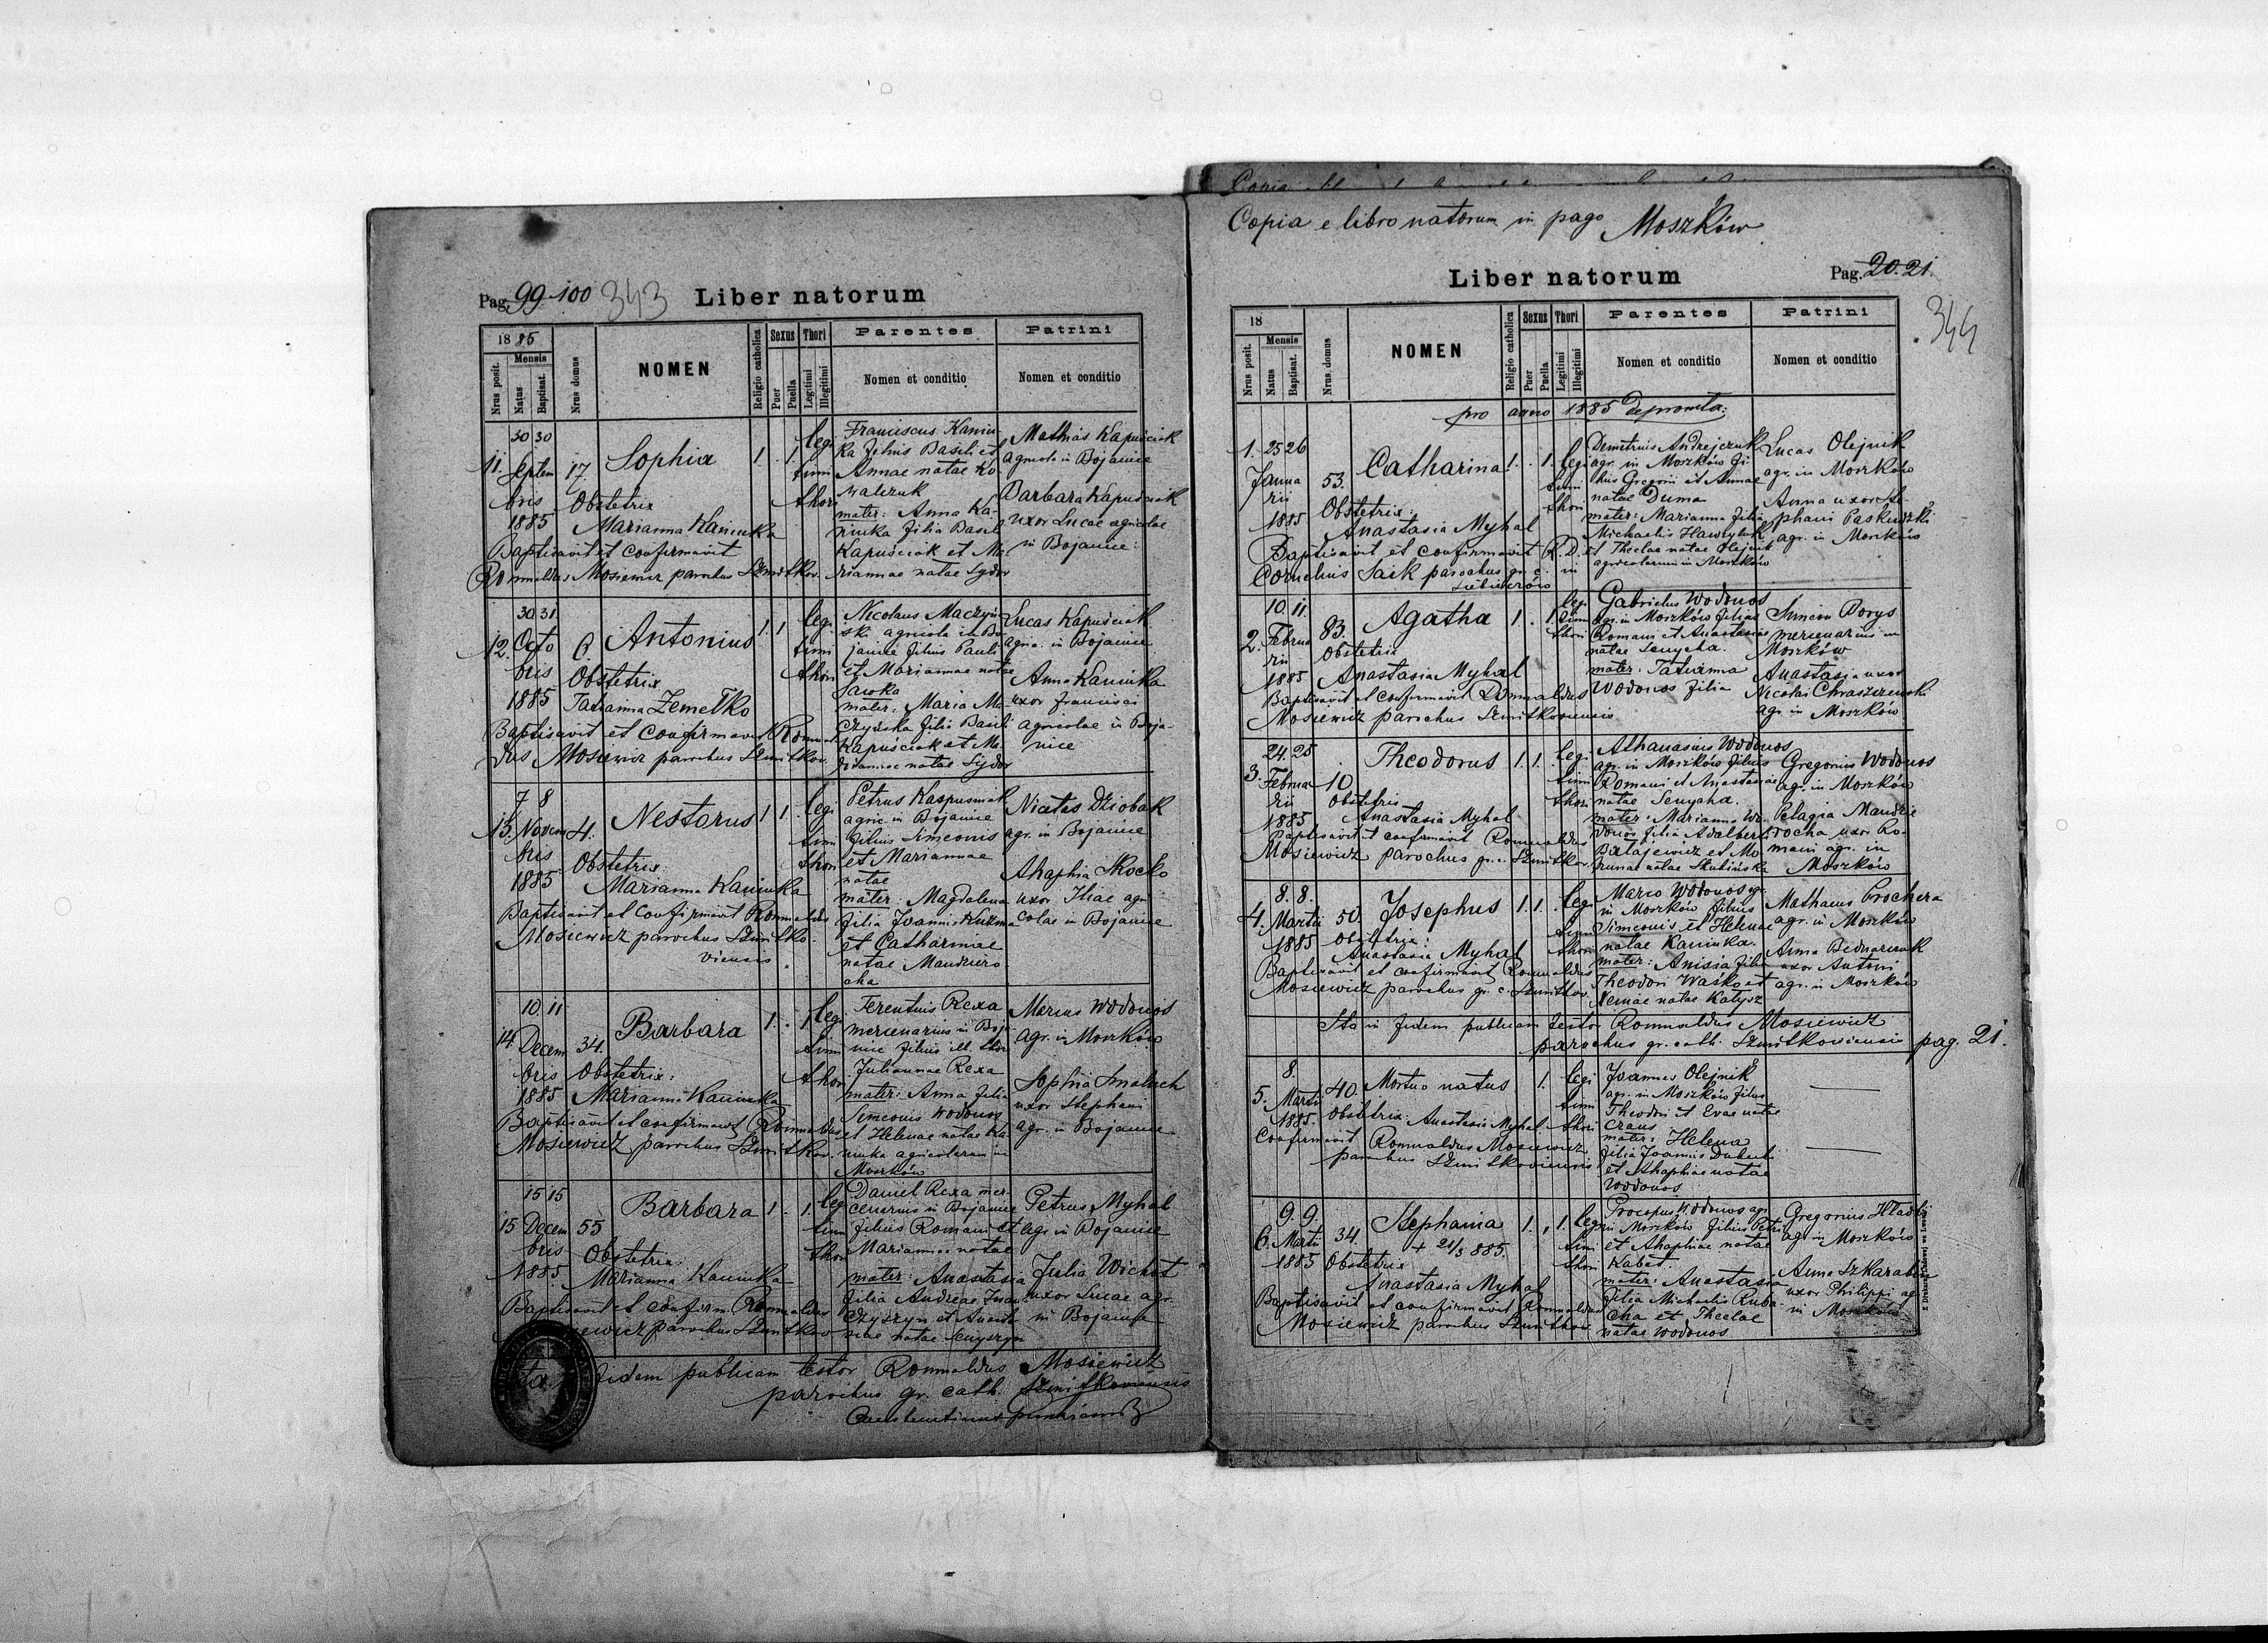 Pag. 99-100 343 Liber natorum
1885
Nrus posit.
Mensis
Natus
Baptisat.
Nrus domus
NOMEN
Religio catholica
Sexus
Puer
Puella
Thori
Legitimi
Illegitimi
Parentes
Nomen et conditio
Patrini
Nomen et conditio
11.
30 30
Septem
bris
1885
17.
Sophia
1 . 1.
legi
timi
thori
Obstetrix
Marianna Kaninka
Baptisavit et confirmavit
Romualdus Mosiewicz parochus Szmitkov.
Franciscus Kanin-
ka filius Basilii et
Annae natae Ko
walczuk
mater: Anna Ka-
ninka filia Basili
Kapuściak et Ma-
riannae natae Sydor
Mathias Kapuściak
agricola in Bojanice
Barbara Kapuściak
uxor Lucae agricolae
in Bojanice
12.
30 31
Octo
bris
1885
6
Antonius
1. 1
legi
timi
thori
Obstetrix
Tatianna Zemełko
Baptisavit et confirmavit Romual
dus Mosiewicz parochus Szmitkov.
Nicolaus Maczyń-
ski agricola in Bo-
janice filius Pauli
et Mariannae natae
Sawka
mater: Maria Ma-
czyńska filia Basili
Kapuściak et Ma-
riannae natae Sydor
Lucas Kapuściak
agric. in Bojanice
Anna Kaninka
uxor Francisci
agricolae in Boja-
nice
13.
7 8
Novem
bris
1885
4.
Nestorus
1 1.
legi
timi
thori
Obstetrix:
Marianna Kaninka
Baptisavit et confirmavit Romualdus
Mosiewicz parochus Szmitko-
viensis.
Petrus Kaspusmak
agric. in Bojanice
filius Simeonis
et Mariannae
natae
mater: Magdalena
filia Joannis Kuzma
et Catharinae
natae Mandziuro
cha
Nicetas Dziobak
agr. in Bojanice
Ahaphia Skocko
uxor Iliae agri
colae in Bojanice
14.
10 11
Decem
bris
1885
34.
Barbara
1 . 1
legi
timi
thori
Obstetrix:
Marianna Kaninka
Baptisavit et confirmavit Romualdus
Mosiewicz parochus Szmitkov.
Terentius Rexa
mercenarius in Boja
nice filius ill. thori
Juliannae Rexa
mater: Anna filia
Simeonis Wodonos
et Helenae natae Ka
ninka agricolarum in
Moszków
Marcus Wodonos
agr. in Moszków
Sophia Smaluch
uxor Stephani
agr. in Bojanice
15
15 15
Decem
bris
1885
55
Barbara
1 . 1.
legi
timi
thori
Obstetrix:
Marianna Kaninka
Baptisavit et confirm. Romualdus
parochus Szmitkov
Daniel Rexa mer-
cenarius in Bojanice
filius Romani et
Mariannae natae
mater: Anastasia
filia Andreae
Petrus Myhal
agr. in Bojanice
Julia Wichot
uxor Lucae agr.
in Bojanice
fidem publicam testor Romualdus Mosiewicz
parochus gr. cath. Szmitkoviensis
Copia e libro natorum in pago Moszków
Liber natorum Pag. 20. 21.
344
18
Nrus posit.
Mensis
Natus
Baptisat.
Nrus domus
NOMEN
Religio catholica
Sexus
Puer
Puella
Thori
Legitimi
Illegitimi
Parentes
Nomen et conditio
Patrini
Nomen et conditio
pro anno 1885 deprompta:
1.
25 26
Janua
rii
1885
53.
Catharina
1. . 1.
legi
timi
thori
Obstetrix:
Anastasia Myhal
Baptisavit et confirmavit R. D.
Cornelius Saik parochus gr. c. in
Demetrius Andrejczuk
agr. in Moszków fi
lius Gregorii et Annae
natae Duma
mater: Marianna filia
Michaelis Hawryluk
et Theclae natae Olejnik
agricolarum in Moszków
Lucas Olejnik
agr. in Moszków
Anna uxor Ste-
phani
agr. in Moszków
2.
10. 11.
Februa
rii
1885
83.
Agatha
1 . 1.
legi
timi
thori
Obstetrix
Anastasia Myhal
Baptisavit et confirmavit Romualdus
Mosiewicz parochus Szmitkoviensis
Gabrielus Wodonos
agr. in Moszków filius
Romani et Anastasiae
natae Senycha.
mater: Tatianna
Wodonos filia
Simeon Borys
mercenarius in
Moszków
Anastasia uxor
Nicolai Chraszczewski
agr. in Moszków
3.
24. 25
Februa
rii
1885
10
Theodorus
1. 1.
legi
timi
thori
Obstetrix
Anastasia Myhal
Baptisavit et confirmavit Romualdus
Mosiewicz parochus gr. c. Szmitkov.
Athanasius Wodonos
agr. in Moszków filius
Romani et Anastasiae
natae Senycha.
mater: Marianna Wo-
donos filia Adalberti
Batajewicz et
Gregorius Wodonos
agr. in Moszków
Pelagia Mandziu
rocha uxor Ro-
mani agr. in
Moszków
4.
8. 8.
Martii
1885
50.
Josephus
1. 1.
legi
timi
thori
Obstetrix:
Anastasia Myhal
Baptisavit et confirmavit Romualdus
Mosiewicz parochus gr. c. Szmitkov.
Marco Wodonos agr.
in Moszków filius
Simeonis et Helenae
natae Kaninka.
mater: Anisia filia
Theodori Waśko et
natae Katysz
Mathaeus Prochera
agr. in Moszków
Anna Bednarczuk
uxor Antoni
agr. in Moszków
Ita in fidem publicam testor Romualdus Mosiewicz
parochus gr. cath. Szmitkoviensis pag. 21.
5.
8.
Martii
1885.
40.
Mortuo natus
1.
legi
timi
thori
Obstetrix: Anastasia Myhal
Confirmavit Romualdus Mosiewicz
parochus Szmitkoviensis
Joannes Olejnik
agr. in Moszków filius
Theodori et Evae natae
Craus
mater: Helena
filia Joannis
et Ahaphiae natae
Wodonos
6.
9. 9.
Martii
1885
34.
Stephania
+ 21/3 885.
1. . 1.
legi
timi
thori
Obstetrix
Anastasia Myhal
Baptisavit et confirmavit Romualdus
Mosiewicz parochus Szmitkov.
Procopus Wodonos agr.
in Moszków filius Petri
et Ahaphiae natae
Kabat.
mater: Anastasia
filia Michaelis Ruba-
cha et Theclae
natae Wodonos
Gregorius Hład
agr. in Moszków
Anna Szkaraba
uxor Philippi agr
in Moszków